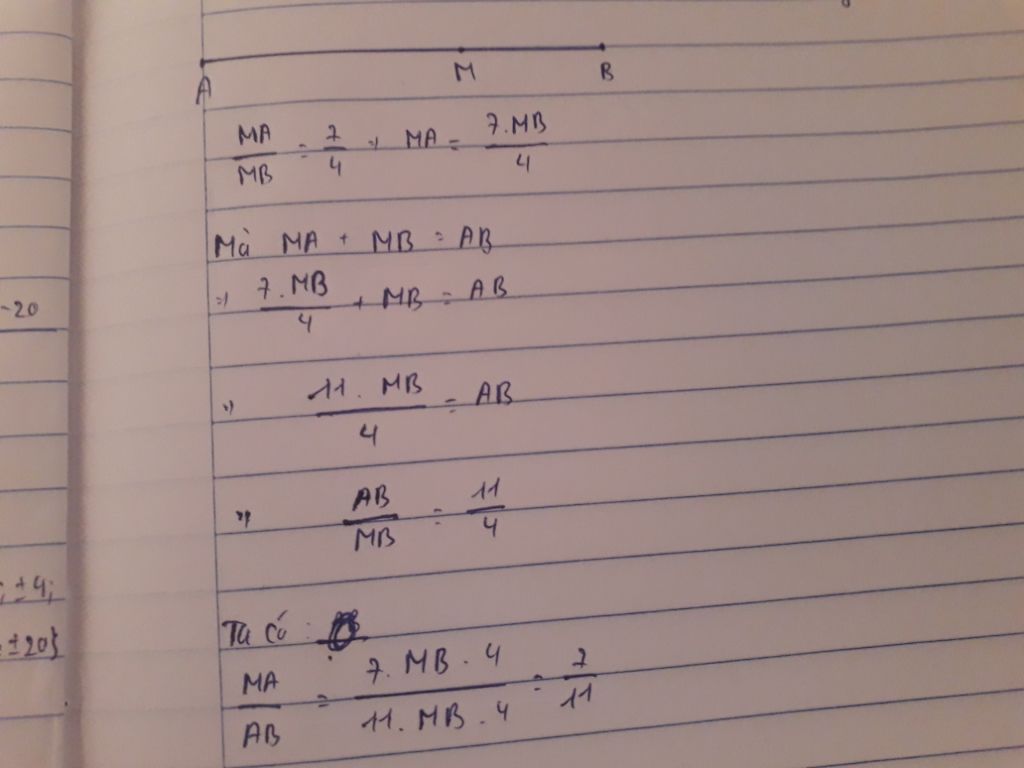 A M B
MA/MB = 7/4 => MA = 7.MB/4
Mà MA + MB = AB
=> 7.MB/4 + MB = AB
=> 11.MB/4 = AB
=> AB/MB = 11/4
Ta có:
MA/AB = 7.MB.4/11.MB.4 = 7/11
-20
; ±4;
±20}